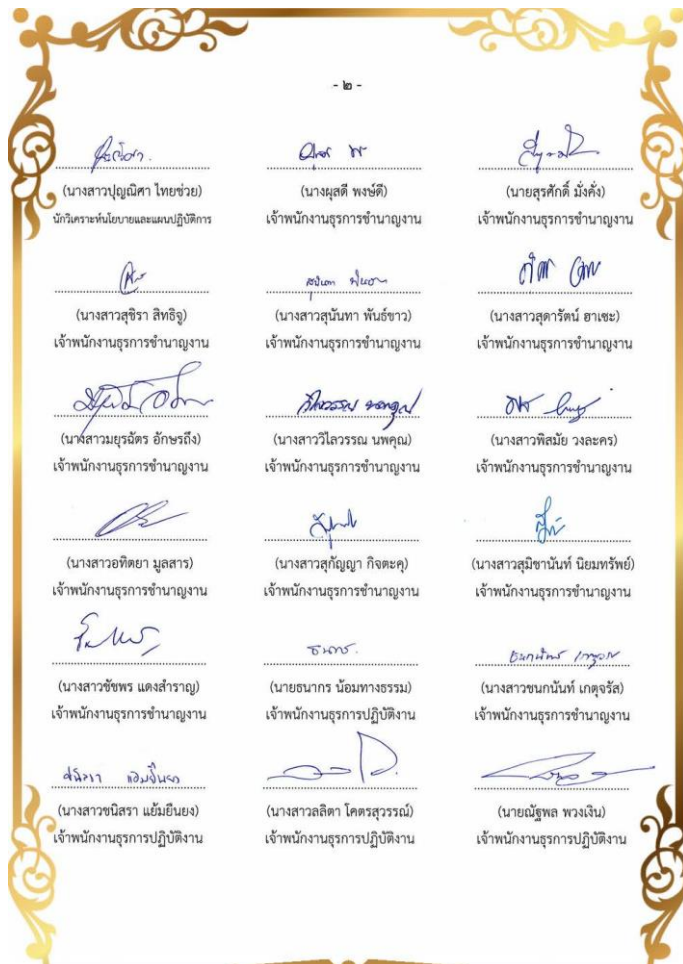 - ๒ -
(นางสาวปุญณิศา ไทยช่วย)
นักวิเคราะห์นโยบายและแผนปฏิบัติการ
(นางผุสดี พงษ์ดี)
เจ้าพนักงานธุรการชำนาญงาน
(นายสุรศักดิ์ มั่งคั่ง)
เจ้าพนักงานธุรการชำนาญงาน
(นางสาวสุชิรา สิทธิจู)
เจ้าพนักงานธุรการชำนาญงาน
สุนันทา พันธ์ขาว
(นางสาวสุนันทา พันธ์ขาว)
เจ้าพนักงานธุรการชำนาญงาน
(นางสาวสุดารัตน์ ฮาเซะ)
เจ้าพนักงานธุรการชำนาญงาน
(นางสาวมยุรฉัตร อักษรถึง)
เจ้าพนักงานธุรการชำนาญงาน
วิไลวรรณ นพคุณ
(นางสาววิไลวรรณ นพคุณ)
เจ้าพนักงานธุรการชำนาญงาน
(นางสาวพิสมัย วงละคร)
เจ้าพนักงานธุรการชำนาญงาน
(นางสาวอทิตยา มูลสาร)
เจ้าพนักงานธุรการชำนาญงาน
(นางสาวสุกัญญา กิจตะคุ)
เจ้าพนักงานธุรการชำนาญงาน
(นางสาวสุมิชานันท์ นิยมทรัพย์)
เจ้าพนักงานธุรการชำนาญงาน
(นางสาวชัชพร แดงสำราญ)
เจ้าพนักงานธุรการชำนาญงาน
ธนากร
(นายธนากร น้อมทางธรรม)
เจ้าพนักงานธุรการปฏิบัติงาน
ชนกนันท์ เกตุจรัส
(นางสาวชนกนันท์ เกตุจรัส)
เจ้าพนักงานธุรการชำนาญงาน
ชนิสรา แย้มยืนยง
(นางสาวชนิสรา แย้มยืนยง)
เจ้าพนักงานธุรการปฏิบัติงาน
(นางสาวลลิตา โคตรสุวรรณ์)
เจ้าพนักงานธุรการปฏิบัติงาน
(นายณัฐพล พวงเงิน)
เจ้าพนักงานธุรการปฏิบัติงาน